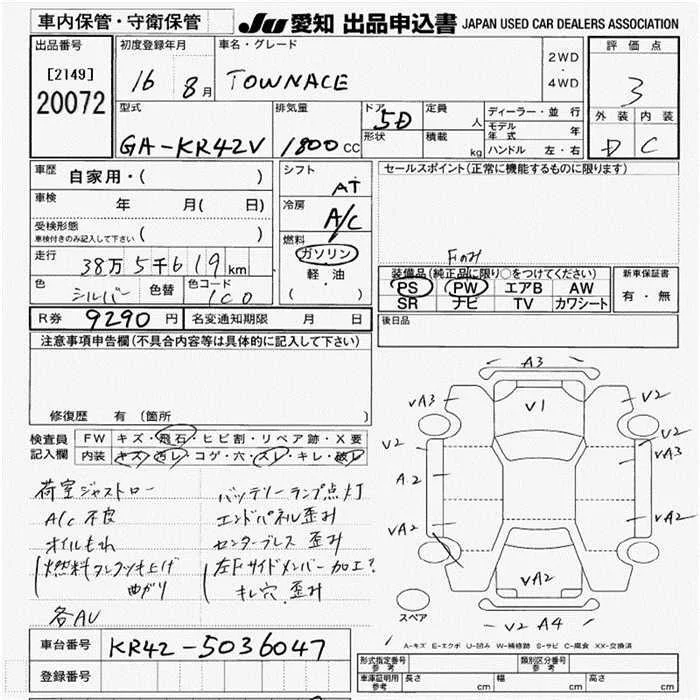 車内保管・守衛保管
JU 愛知 出品申込書 JAPAN USED CAR DEALERS ASSOCIATION
出品番号
[2149]
20072
初度登録年月
16 8月
車名・グレード
TOWNACE
2WD
・
4WD
評価点
3
外装 内装
D C
型式
GA-KR42V
排気量
1800 CC
ドア 5D
形状
定員 人
積載 kg
ディーラー・並行
モデル年式 年
ハンドル 左・右
車歴 自家用・( )
車検 年 月( 日)
受検形態
車検付きのみ記入して下さい ( )
走行 38万5千619km
色 シルバー 色替 色コード 1C0
シフト AT
冷房 A/C
燃料
ガソリン
軽・油
( )
セールスポイント(正常に機能するものに限ります)
Fのみ
装備品(純正品に限り○をつけてください)
PS PW エアB AW
SR ナビ TV カワシート
新車保証書
有・無
R券 9290円 名変通知期限 月 日
後日品
注意事項申告欄(不具合内容等は具体的に記入して下さい)
修復歴 有(箇所
検査員記入欄
FW キズ・飛石・ヒビ割・リペア跡・X要
内装 キズ・汚レ・コゲ・穴・スレ・キレ・破レ
荷室ジャストロー
A/C不良
オイルもれ
燃料タンクつき上げ
曲がり
各AU
バッテリーランプ点灯
エンドパネル歪み
センタープレス 歪み
左Fサイドメンバー加工?
キレ 穴 歪み
A3
V1
VA3
V2
V2
V2
VA3
A2
VA2
VA2
VA2
V2 A4
スペア
A-キズ E-エクボ U-凹み W-補修跡 S-サビ C-腐食 XX-交換済
車台番号 KR42-5036047
登録番号
形式指定番号 参考
類別区分番号 参考
車庫証明用 参考 長さ cm 幅 cm 高さ cm